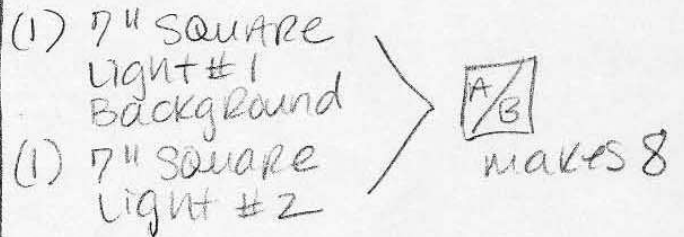 (1) 7" SQUARE
Light #1
Background
(1) 7" SQUARE
Light #2
A/B
makes 8